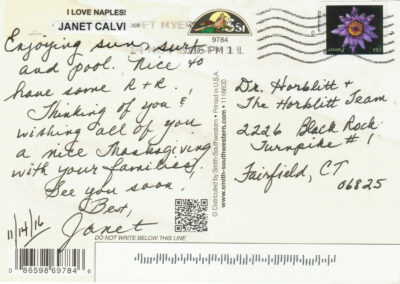 I LOVE NAPLES!
JANET CALVI
FT MYER
9784
PM 1 L
Enjoying sun, surf
and pool. Nice to
have some R & R!
Thinking of you &
wishing all of you
a nice Thanksgiving
with your families!
See you soon!
Best,
Janet
11/14/16
Dr. Horblitt &
The Horblitt Team
2226 Black Rock
Turnpike #1
Fairfield, CT
06825
© Distributed by Smith-Southwestern • Printed in U.S.A.
www.smith-southwestern.com
DO NOT WRITE BELOW THIS LINE
0 86598 69784 6